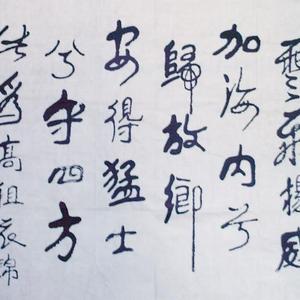 雲飛揚威
加海內兮
歸故鄉
安得猛士
兮守四方
為高祖衣錦